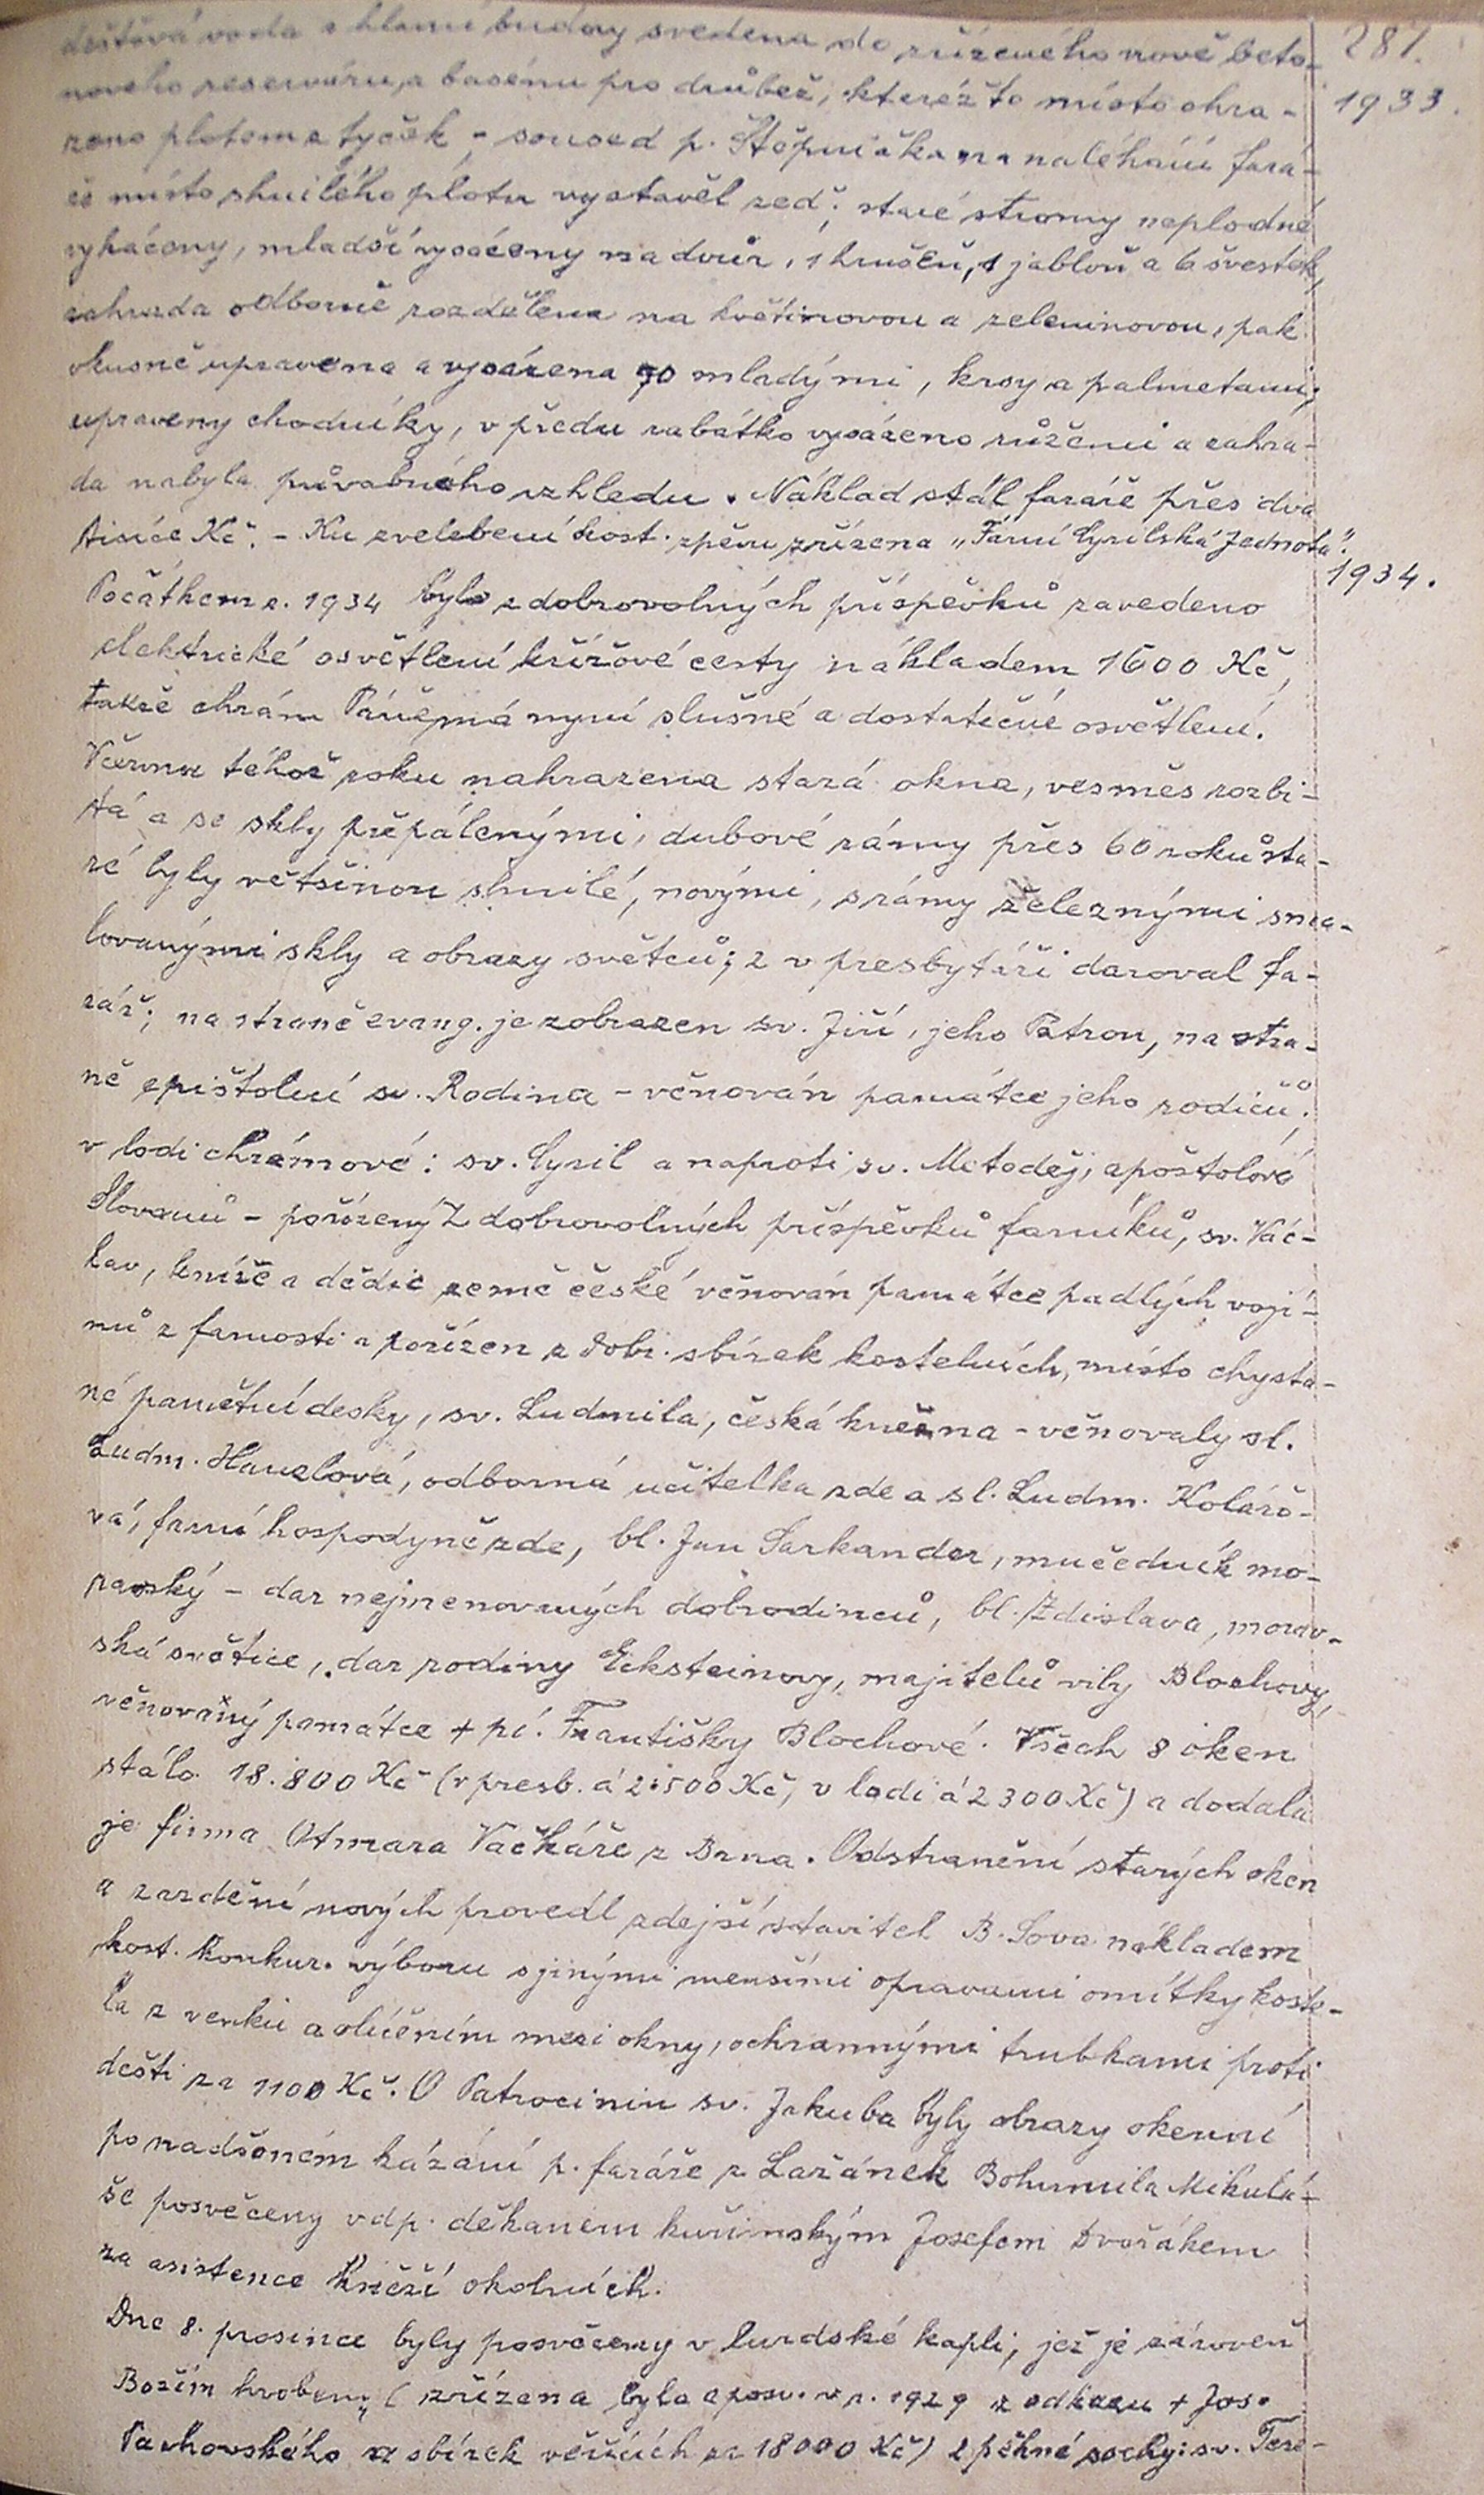 dešťová voda s hlavní budovy svedena do zřízeného nově beto- 287.
nového reservoáru, a basénu pro drůbež, kteréžto místo ohra- 1933.
zeno plotem z tyček - soused p. Štěpnička na naléhání fará-
ře místo shnilého plotu vystavěl zeď; staré stromy neplodné
vykáceny, mladší vysázeny na dvůr, 1 hrušeň, 1 jabloň a 6 švestek,
zahrada odborně rozdělena na květinovou a zeleninovou, pak
vkusně upravena a vysázena 70 mladými, krsy a palmetami;
upraveny chodníky, v předu rabátko vysázeno růžemi a zahra-
da nabyla půvabného vzhledu. Náklad stál faráře přes dva
tisíce Kč. - Ku zvelebení kost. zpěvu zřízena „Farní Cyrilská Jednota".
Počátkem r. 1934 bylo z dobrovolných příspěvků zavedeno 1934.
elektrické osvětlení křížové cesty nákladem 1600 Kč,
takže chrám Páně má nyní slušné a dostatečné osvětlení.
V červnu téhož roku nahrazena stará okna, vesměs rozbi-
tá a se skly přepálenými, dubové rámy přes 60 roků sta-
ré byly většinou shnilé, novými, s rámy železnými s ma-
lovanými skly a obrazy světců; 2 v presbytáři daroval fa-
rář; na straně evang. je zobrazen sv. Jiří, jeho Patron, na stra-
ně epištolní sv. Rodina - věnován památce jeho rodičů;
v lodi chrámové: sv. Cyril a naproti sv. Metoděj, apoštolové
Slovanů - pořízený z dobrovolných příspěvků farníků, sv. Vác-
lav, kníže a dědic země české věnován památce padlých vojí-
nů z farnosti a pořízen z dobr. sbírek kostelních, místo chysta-
né pamětní desky, sv. Ludmila, česká kněžna - věnovaly sl.
Ludm. Hauzlová, odborná učitelka zde a sl. Ludm. Kolářo-
vá, farní hospodyně zde, bl. Jan Sarkander, mučedník mo-
ravský - dar nejmenovaných dobrodinců, bl. Zdislava, morav-
ská světice, dar rodiny Ecksteinovy, majitelů vily Blochovy,
věnovaný památce + pí. Františky Blochové. Všech 8 oken
stálo 18.800 Kč (v presb. á 2.500 Kč, v lodi á 2300 Kč) a dodala
je firma Otmara Vačkáře z Brna. Odstranění starých oken
a zazdění nových provedl zdejší stavitel B. Sova nákladem
kost. konkur. výboru s jinými menšími opravami omítky koste-
la z venku a mezi okny, ochrannými trubkami proti
dešti za 1100 Kč. O Patrociniu sv. Jakuba byly obrazy okenní
po nadšeném kázání p. faráře z Lažánek Bohumila Mikulá-
še posvěceny vdp. děkanem kuřimským Josefem Dvořákem
za asistence kněží okolních.
Dne 8. prosince byly posvěceny v lurdské kapli, jež je zároveň
Božím hrobem, (zřízena byla a posv. v r. 1929 z odkazu + Jos.
Pachovského a sbírek věřících za 18000 Kč) 2 pěkné sochy: sv. Tere-